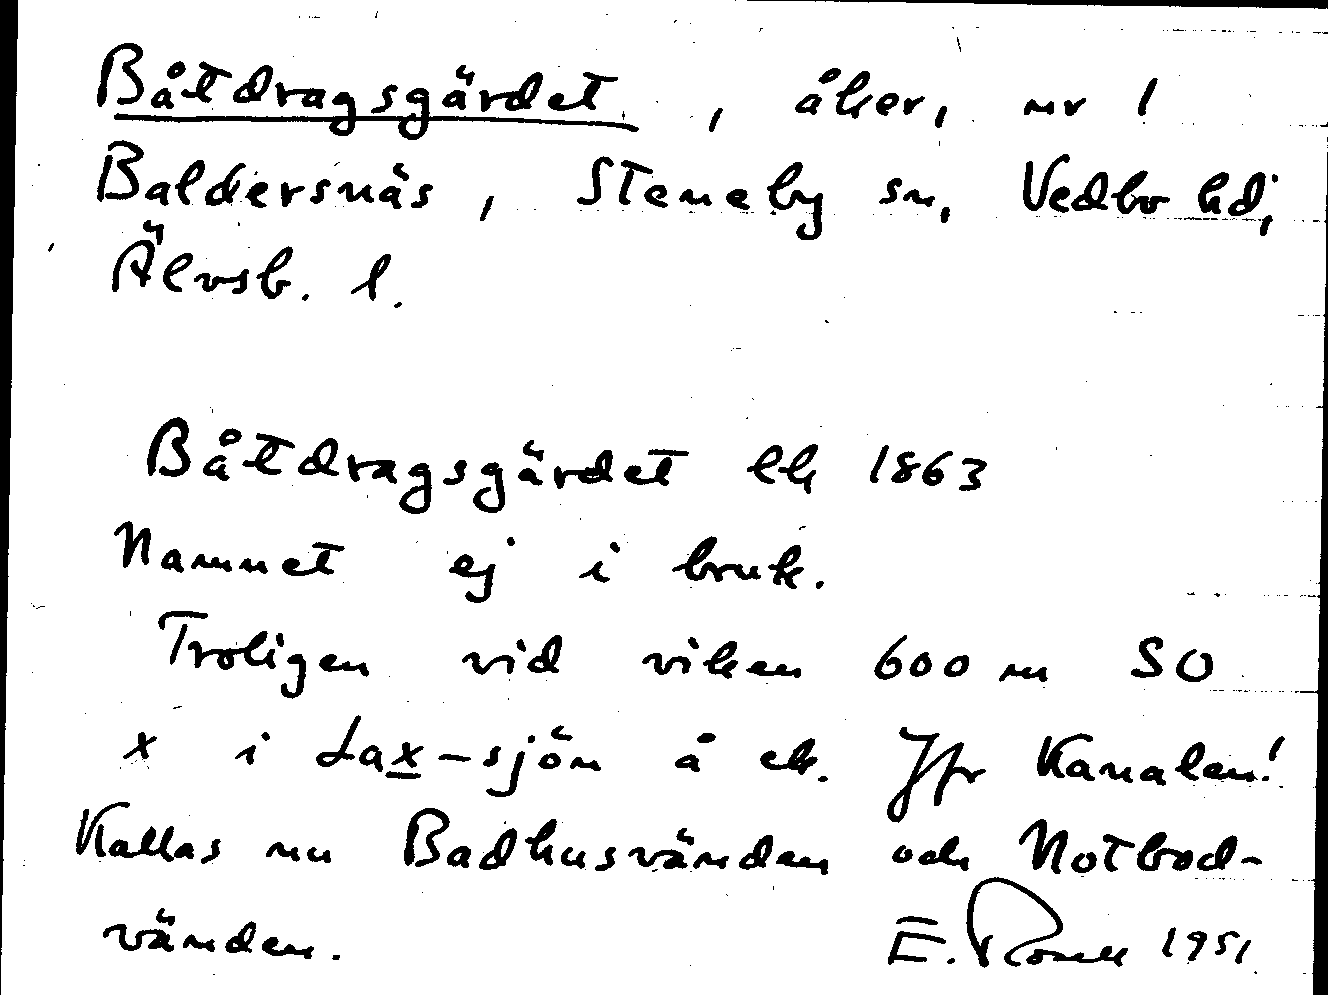 Båtdragsgärdet, åker, nr 1
Baldersnäs, Steneby sn, Vedbo hd,
Älvsb. l.
Båtdragsgärdet lk 1863
Namnet ej i bruk.
Troligen vid viken 600 m SO
x i Lax-sjön å ek. Jfr Kanalen!
Kallas nu Badhusvänden och Notbod-
vänden. E. Rosell 1951